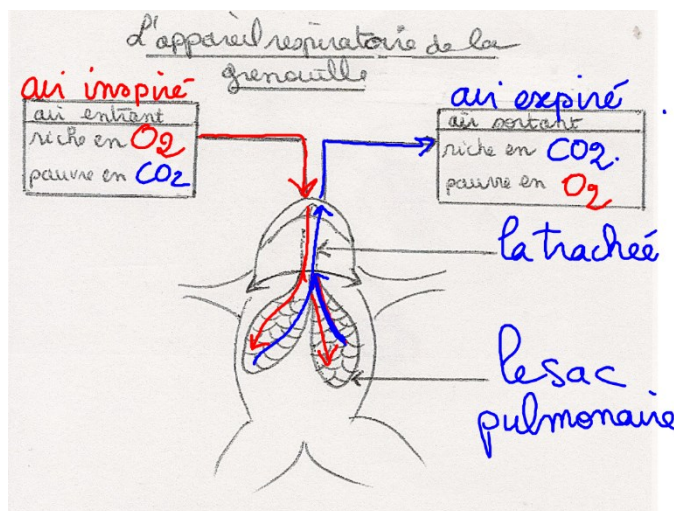 L'appareil respiratoire de la
grenouille
air inspiré
air entrant
riche en O2
pauvre en CO2
air expiré
air sortant
riche en CO2.
pauvre en O2
la trachéé
le sac
pulmonaire